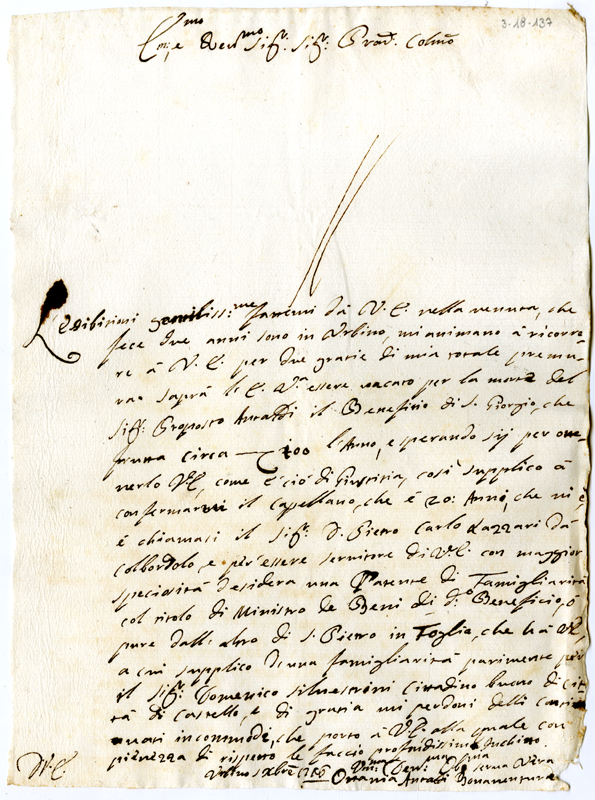 3-18-137
Em:e Rev:mo Sig:r Sig:r Prõn. Colmõ
L'Esibizioni gentiliss:me fattemi dà V. E. nella venuta, che
fece due anni sono in Urbino, mi animano à ricorre-
re à V. E. per due grazie di mia totale premu-
ra. Saprà l'E. V.a essere vacato per la morte del
Sig:r Proposto Antaldi il Benefizio di S. Giorgio, che
frutta circa 100 l'Anno, e sperando sij per aver-
verlo V.E., come è ciò di Giustizia, così supplico à
confermarvi il Capellano, che è 20: Anni, che vi è,
e chiamasi il Sig:r D. Pietro Carlo Lazzari dà
Colbordolo, e per essere servitore di V. E. con maggior
speciosità desidera una Patente di Famigliarità
col titolo di Ministro de Beni di d:o Beneficio, ò
pure dell'altro di S. Pietro in Foglia, che hà V.E.,
a cui supplico d'una famigliarità parimente per
il Sig:r Domenico Silvestrini Cittadino buono di Cit-
tà di Castello, e di grazia mi perdoni delli
incommodi, che porto à V.E. alla quale con
pienezza di rispetto le faccio profondissimo Inchino
V. E.
Urbino
Um:ma Dev:ma Serva Vera
Antaldi Bonaventura